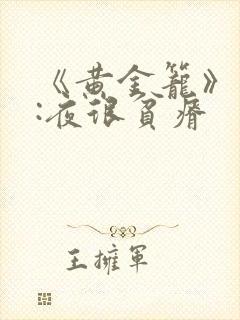 《黄金籠》
:夜很貧瘠
王擁軍